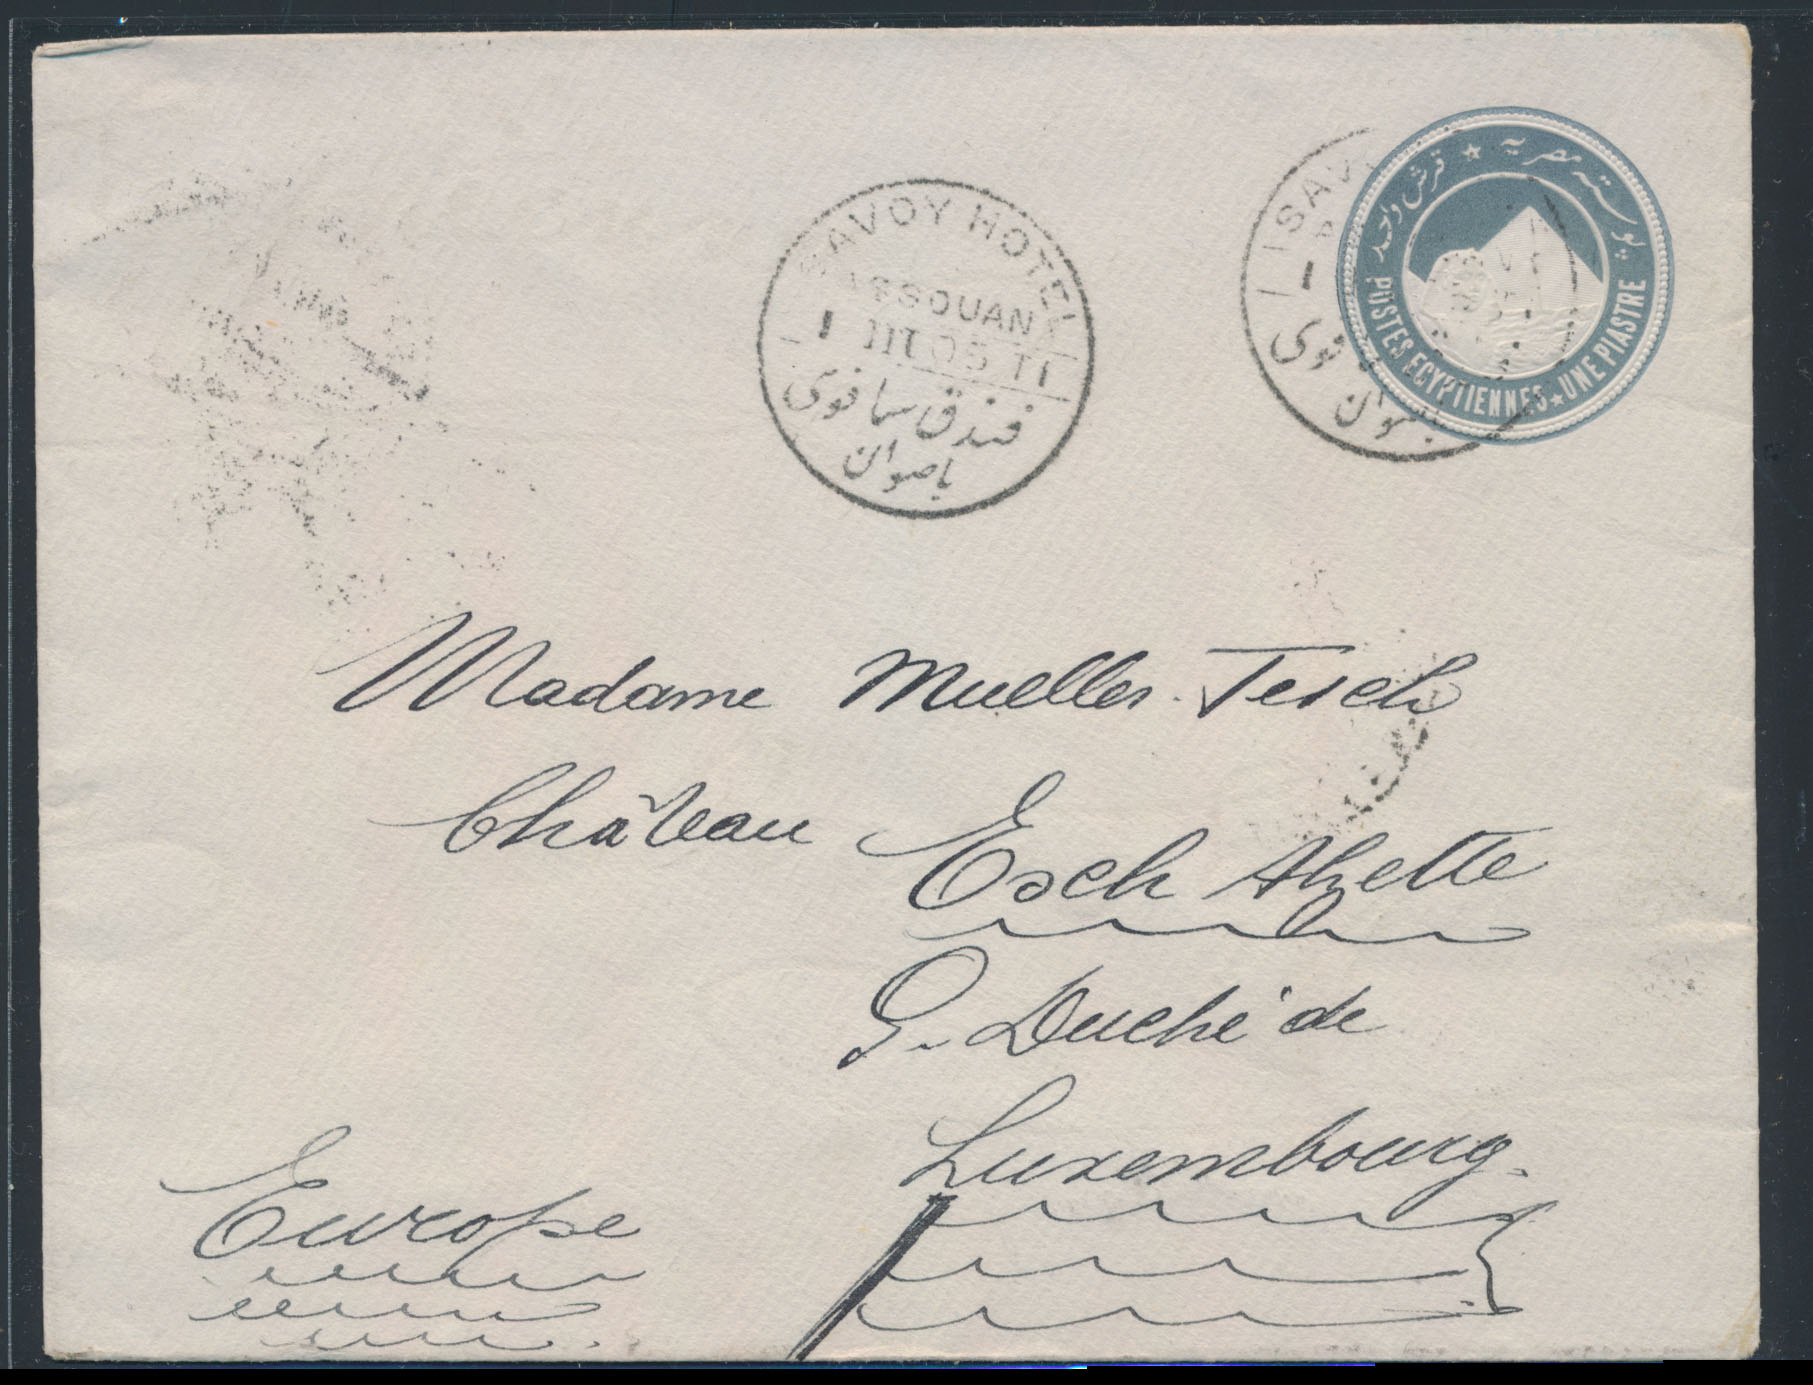 SAVOY HOTEL
ASSOUAN
1 III 05 T1
فندق سافوى
باصوان
SAV
بوسته مصريه ★ قرش واحد
POSTES EGYPTIENNES ★ UNE PIASTRE
Madame Mueller-Tesch
Château Esch Alzette
G. Duché de
Luxembourg.
Europe